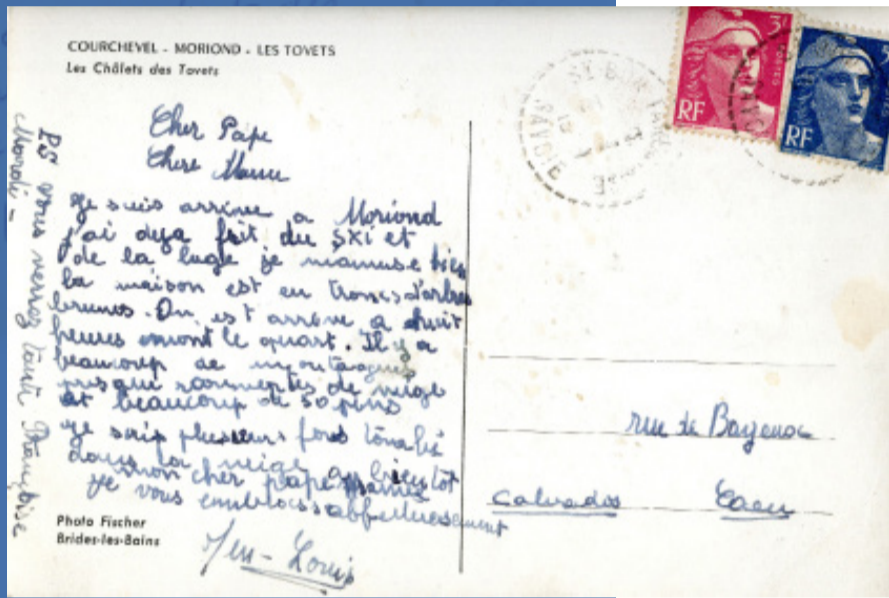 COURCHEVEL - MORIOND - LES TOVETS
Les Châlets des Tovets
Cher Pape
Chere Mame
Je suis arrive a Moriond
j'ai deja fait du ski et
de la luge je mamuse bien
la maison est en troncs d'arbres
brunes. On est arrive a huit
heures moins le quart. Il y a
beaucoup de montagnes
presque de neige
et beaucoup de sapins
je suis plusieurs fois tombé
dans la neige a bientot
mon cher pape mame
je vous
PS vous verrez tante Françoise
Mardi -
Photo Fischer
Brides-les-Bains
Louis
SAVOIE
3F
POSTES
RF
3F
RF
rue de Bayeux
Calvados Caen